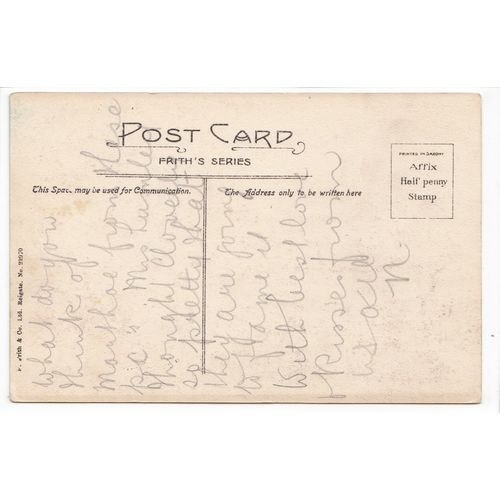 POST CARD
FRITH'S SERIES
This Space may be used for Communication.
The Address only to be written here
PRINTED IN SAXONY
Affix
Half penny
Stamp
F. Frith & Co. Ltd. Reigate. No. 22970
What do you
think of
from these
Mrs
thought Clovelly
so pretty that
they are going
to it
With best love
Kisses from
all